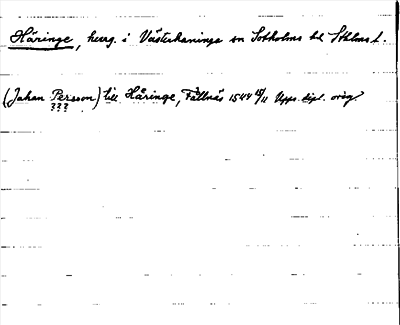 Häringe, herrg. i Västerhaninge sn Sotholms hd Sthlms l.
(Johan Persson) till Häringe, Fållnäs 1544 15/11 Upps. dipl. orig.
???